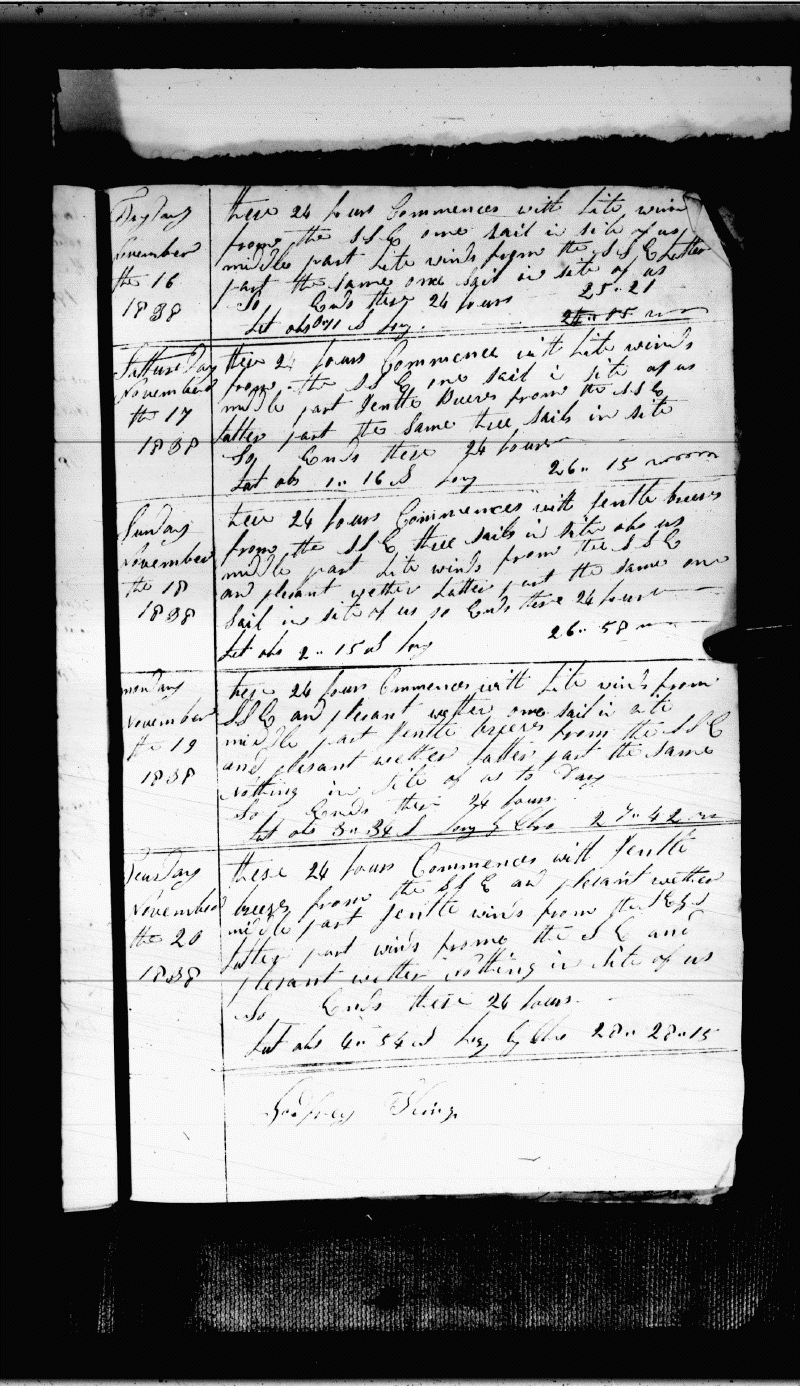 Fryday
November
the 16
1838
these 24 hours Commences with Lite wind
from the S S E one sail in site of us
middle part Lite winds from the S S E Latter
part the same one sail in site of us
So Ends these 24 hours 25.. 21
Lat obs S Log.
Satturs Day
November
the 17
1838
these 24 hours Commence with Lite winds
from the S S E one sail i site of us
middle part Jentle Breres from the S S E
latter part the same three sails in site
So Ends these 24 hours
Lat obs 1.. 16 S Log 26.. 15
Sunday
November
the 18
1838
these 24 hours Commences with Jentle breers
from the S S E three sails in site obs us
middle part Lite winds from the S S E
an plesant wether Latter part the same one
sail in site of us so Ends these 24 hours
Lat obs 2.. 15 S Log 26.. 58
monday
November
the 19
1838
these 24 hours Commences with Lite winds from
S S E and plesant wether one sail in site
middle part Jentle breers from the S S E
and plesant wether Latter part the same
nothing in site of us to Day
So Ends these 24 hours
Lat obs 3.. 34 S Log by Chro 27.. 42
Teusday
November
the 20
1838
these 24 hours Commences with Jentle
breezs from the S S E and plesant wether
middle part Jentle winds from the
latter part winds frome the S E and
plesant wether nothing in site of us
So Ends these 24 hours
Lat obs 4.. 54 S Log by Chro 28.. 28..15
Godfrey